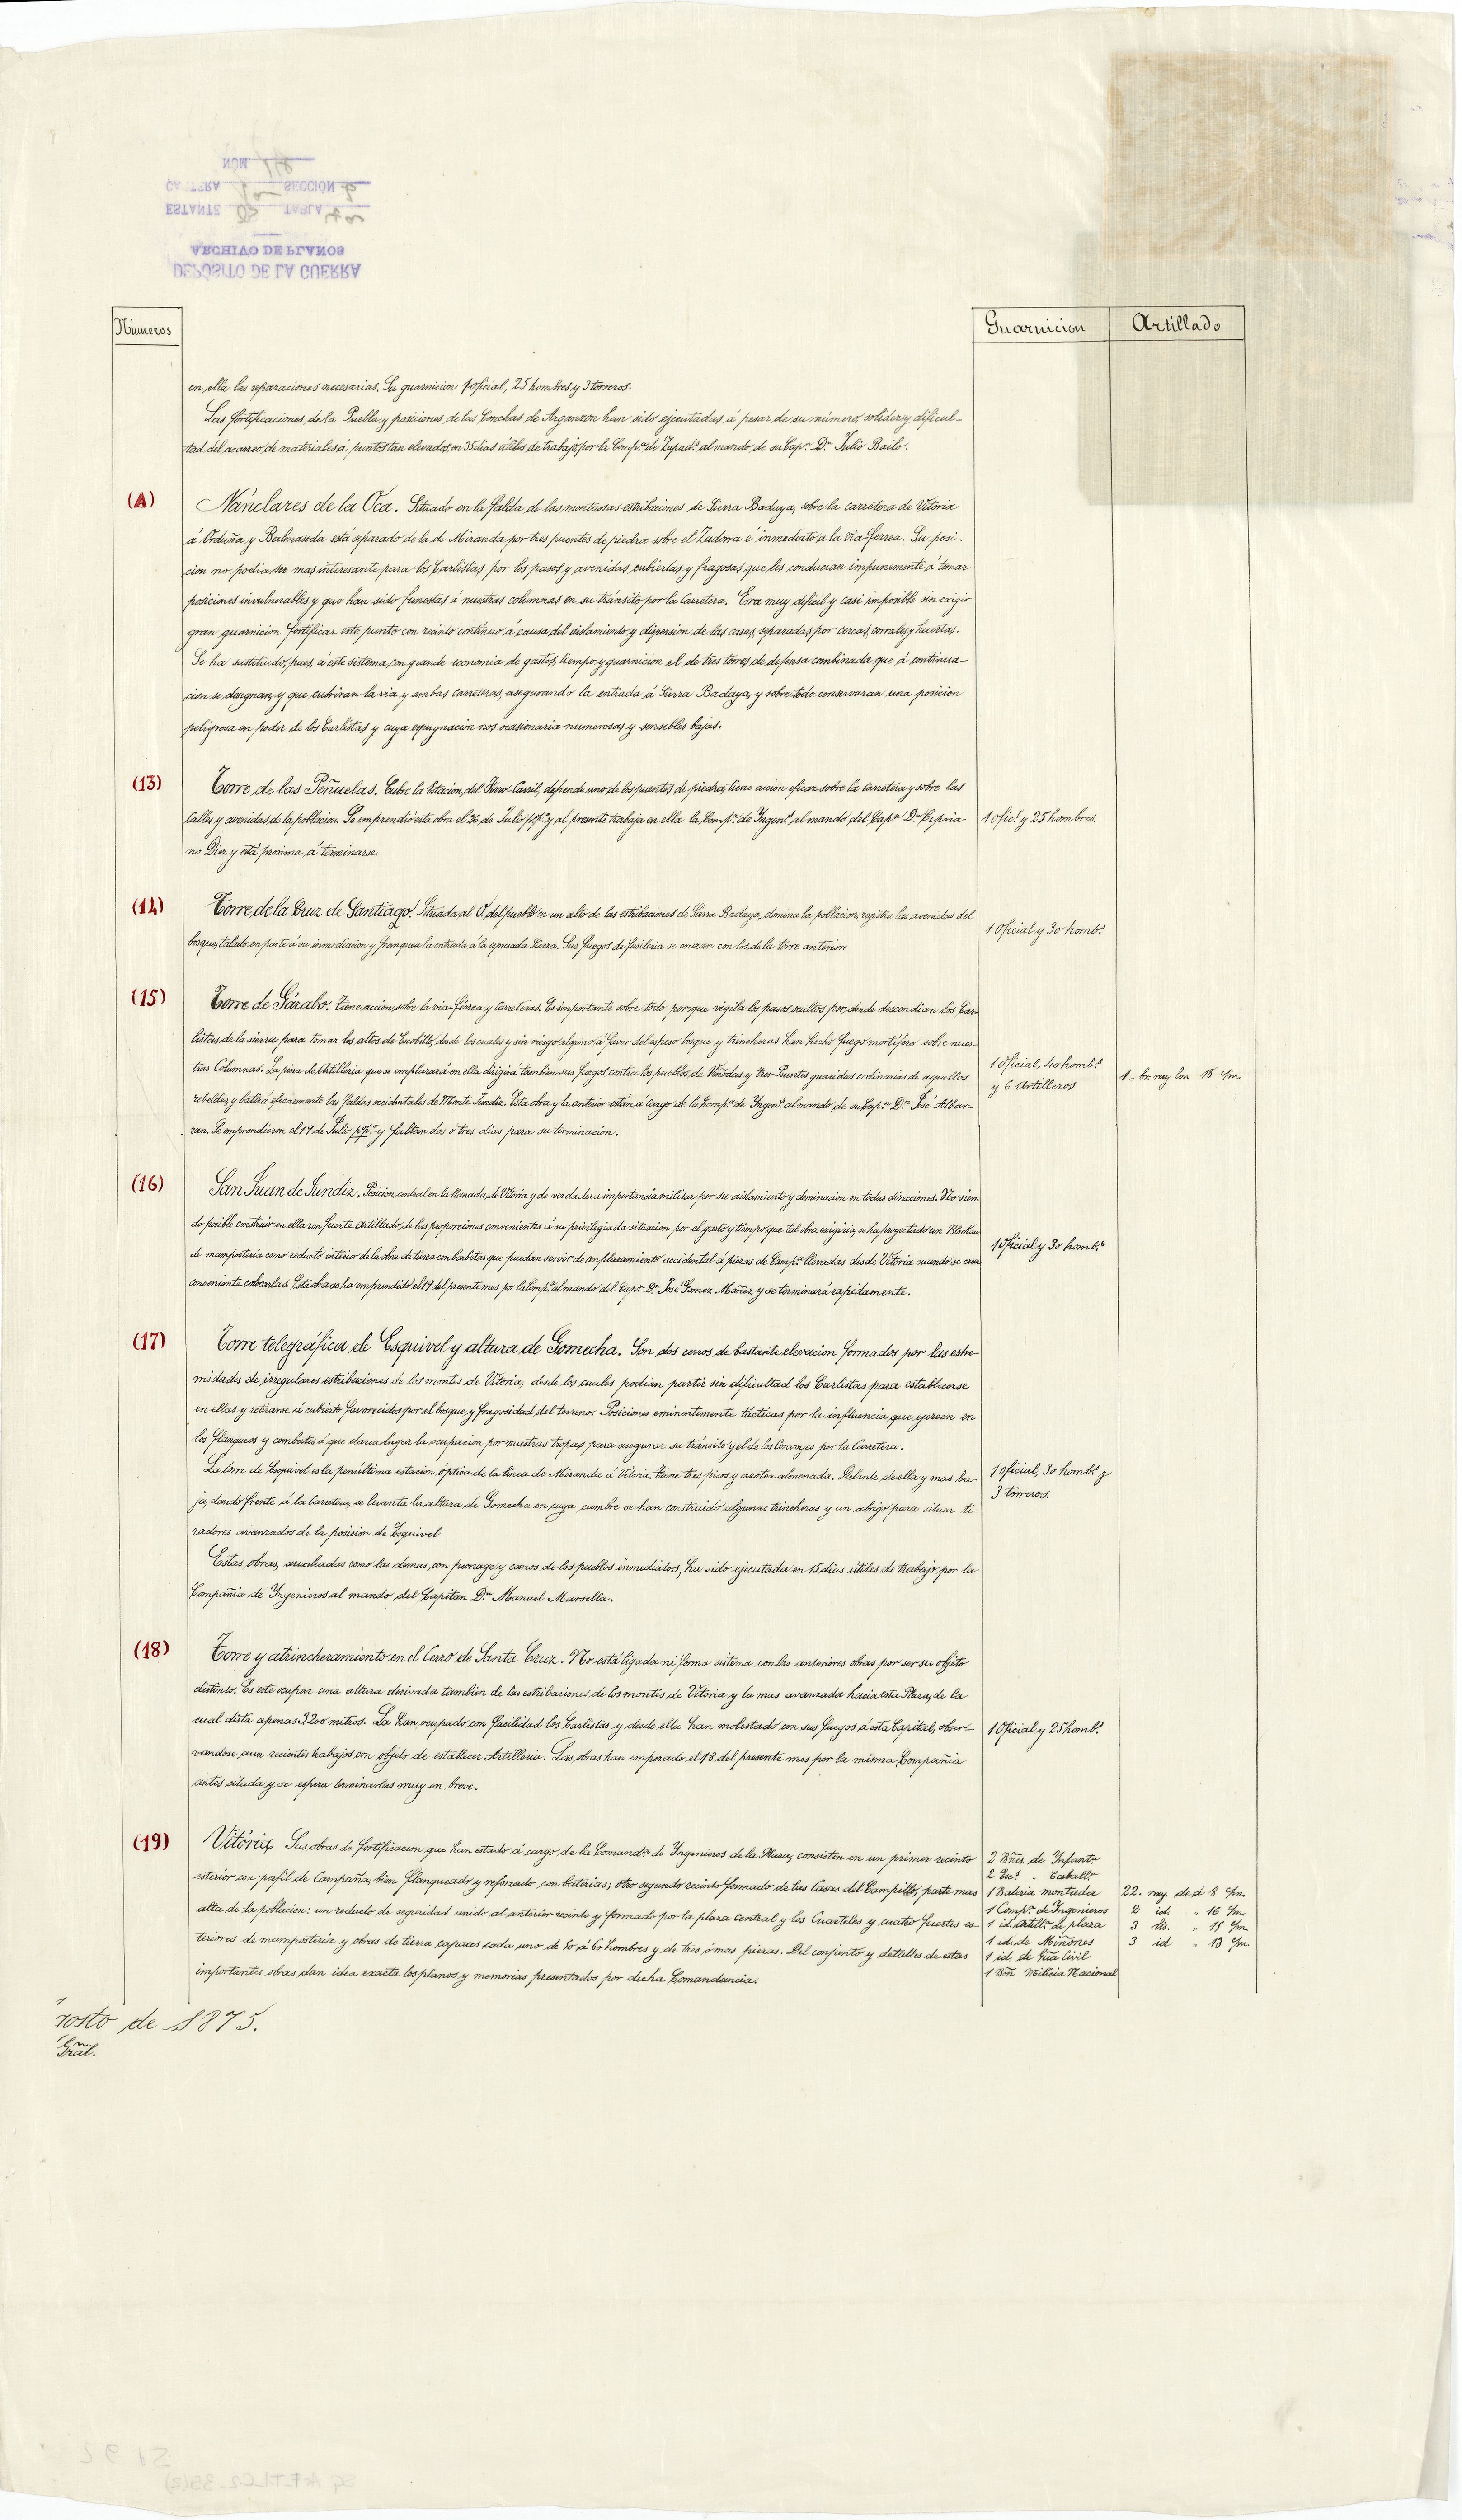 NÚM.
CARTERA SECCIÓN
ESTANTE TABLA
ARCHIVO DE PLANOS
DEPÓSITO DE LA GUERRA
Números
Guarnicion
Artillado
en ella las reparaciones necesarias. Su guarnicion 1 oficial, 25 hombres y 3 torreros.
Las fortificaciones de la Puebla y posiciones de las Conchas de Arganzon han sido ejecutadas á pesar de su número, solidez y dificul-
tad del acarreo de materiales á puntos tan elevados, en 35 dias útiles de trabajo, por la Comp.ª de Zapad.s al mando de su Cap.n D.n Julio Bailo.
(A) Nanclares de la Oca. Situado en la falda de las montuosas estribaciones de Sierra Badaya, sobre la carretera de Vitoria
á Orduña y Balmaseda está separado de la de Miranda por tres puentes de piedra sobre el Zadorra é inmediato a la via-ferrea. Su posi-
cion no podia ser mas interesante para los Carlistas por los pasos y avenidas, cubiertas y fragosas que les conducian impunemente á tomar
posiciones invulnerables y que han sido funestas á nuestras columnas en su tránsito por la Carretera. Era muy dificil y casi imposible sin exigir
gran guarnicion fortificar este punto con recinto contínuo á causa del aislamiento y dispersion de las casas, separadas por cercas, corrales y huertas.
Se ha sustituido, pues, á este sistema, con grande economia de gastos, tiempo y guarnicion el de tres torres de defensa combinada que á continua-
cion se designan, y que cubriran la via y ambas carreteras, asegurando la entrada á Sierra Badaya, y sobre todo conservaran una posicion
peligrosa en poder de los Carlistas y cuya expugnacion nos ocasionaria numerosas y sensibles bajas.
(13) Torre de las Peñuelas. Cubre la Estacion del Ferro-Carril, defiende uno de los puentes de piedra, tiene accion eficaz sobre la carretera y sobre las
calles y avenidas de la poblacion. Se emprendió esta obra el 26 de Julio pp.º y al presente trabaja en ella la Comp.ª de Ingen.s al mando del Cap.n D.n Cipria
no Diez y está proxima á terminarse.
1 ofic.l y 25 hombres.
(14) Torre de la Cruz de Santiago. Situada al O. del pueblo en un alto de las estribaciones de Sierra Badaya, domina la poblacion, registra las avenidas del
bosque, talado en parte á su inmediacion y franquea la entrada á la espresada Sierra. Sus fuegos de fusileria se cruzan con los de la torre anterior.
1 Oficial y 30 homb.s
(15) Torre de Gárabo. Tiene accion sobre la via-férrea y Carreteras. Es importante sobre todo porque vigila los pasos ocultos por donde descendian los Car-
listas de la sierra para tomar los altos de Escobillo, desde los cuales y sin riesgo alguno á favor del espeso bosque y trincheras han hecho fuego mortífero sobre nues-
tras Columnas. La pieza de Artilleria que se emplazará en ella dirigirá tambien sus fuegos contra los pueblos de Víllodas y tres-Puentes guaridas ordinarias de aquellos
rebeldes, y batirá eficazmente las faldas occidentales de Monte Jundiz. Esta obra y la anterior están á cargo de la Comp.ª de Ingen.s al mando de su Cap.n D.n José Albar-
ran. Se emprendieron el 19 de Julio pp.º y faltan dos ó tres dias para su terminacion.
1 Oficial, 40 homb.s
y 6 Artilleros
1 - br. ray. lon 18 c/m.
(16) San Juan de Jundiz. Posicion central en la llanada de Vitoria y de verdadera importancia militar por su aislamiento y dominacion en todas direcciones. No sien
do posible construir en ella un fuerte artillado, de las proporciones convenientes á su privilegiada situacion por el gasto y tiempo que tal obra exigiria, se ha proyectado un Blockaus
de mamposteria como reducto interior de la obra de tierra con barbetas que puedan servir de emplazamiento accidental á piezas de Camp.ª llevadas desde Vitoria cuando se crea
conveniente colocarlas. Esta obra se ha emprendido el 19 del presente mes por la Comp.ª al mando del Cap.n D.n José Gomez Mañez y se terminará rapidamente.
1 Oficial y 30 homb.s
(17) Torre telegráfica de Esquivel y altura de Gomecha. Son dos cerros de bastante elevacion formados por las estre-
midades de irregulares estribaciones de los montes de Vitoria, desde los cuales podian partir sin dificultad los Carlistas para establecerse
en ellas y retirarse á cubierto favorecidos por el bosque y fragosidad del terreno. Posiciones eminentemente tácticas por la influencia que ejercen en
los flanqueos y combates á que daria lugar la ocupacion por nuestras tropas para asegurar su tránsito y el de los Convoyes por la Carretera.
La torre de Esquivel es la penúltima estacion óptica de la linea de Miranda á Vitoria. tiene tres pisos y azotea almenada. Delante de ella y mas ba-
ja, dando frente á la Carretera, se levanta la altura de Gomecha en cuya cumbre se han construido algunas trincheras y un abrigo para situar ti-
radores avanzados de la posicion de Esquivel
1 Oficial, 30 homb.s y
3 torreros.
Estas obras, auxiliadas como las demas, con peonage y carros de los pueblos inmediatos, ha sido ejecutada en 15 dias útiles de trabajo por la
Compañia de Ingenieros al mando del Capitan D.n Manuel Marsella.
(18) Torre y atrincheramiento en el Cerro de Santa Cruz. No está ligada ni forma sistema con las anteriores obras por ser su objeto
distinto. Es este ocupar una altura derivada tambien de las estribaciones de los montes de Vitoria y la mas avanzada hacia esta Plaza, de la
cual dista apenas 3200 metros. La han ocupado con facilidad los Carlistas y desde ella han molestado con sus fuegos á esta Capital, obser-
vandose aun recientes trabajos con objeto de establecer Artilleria. Las obras han empezado el 18 del presente mes por la misma Compañia
antes citada y se espera terminarlas muy en breve.
1 Oficial y 25 homb.s
(19) Vitória. Sus obras de fortificacion que han estado á cargo de la Comand.ª de Ingenieros de la Plaza, consisten en un primer recinto
esterior con perfil de Campaña, bien flanqueado y reforzado con baterias; otro segundo recinto formado de las Casas del Campillo, parte mas
alta de la poblacion: un reducto de seguridad unido al anterior recinto y formado por la plaza central y los Cuarteles y cuatro fuertes es-
teriores de mamposteria y obras de tierra capaces cada uno de 50 á 60 hombres y de tres ó mas piezas. Del conjunto y detalles de estas
importantes obras, dan idea exacta los planos y memorias presentados por dicha Comandancia.
2 Bñes de Infant.ª
2 Esc.s " Caball.ª
1 Bateria montada
1 Comp.ª de Ingenieros
1 id. Artill.ª de plaza
1 id. de Miñones
1 id. de Gua Civil
1 Bñ Milicia Nacional
22. ray. de á 8 c/m.
2 id. " 16 c/m
3 lis. " 15 c/m.
3 id " 13 c/m.
rosto de 1875.
Gral.